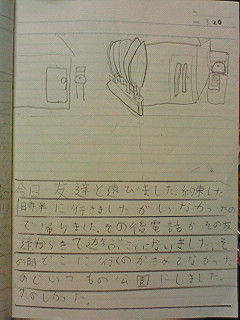 今日友達と遊びました。約束した
時間に行きましたがいなかったの
で帰りました。その後電話がその友
達からきて遊ぶことになりました。そ
の時どこに行くのかきめてなかった
のでいつもの公園にしました。
楽しかった。